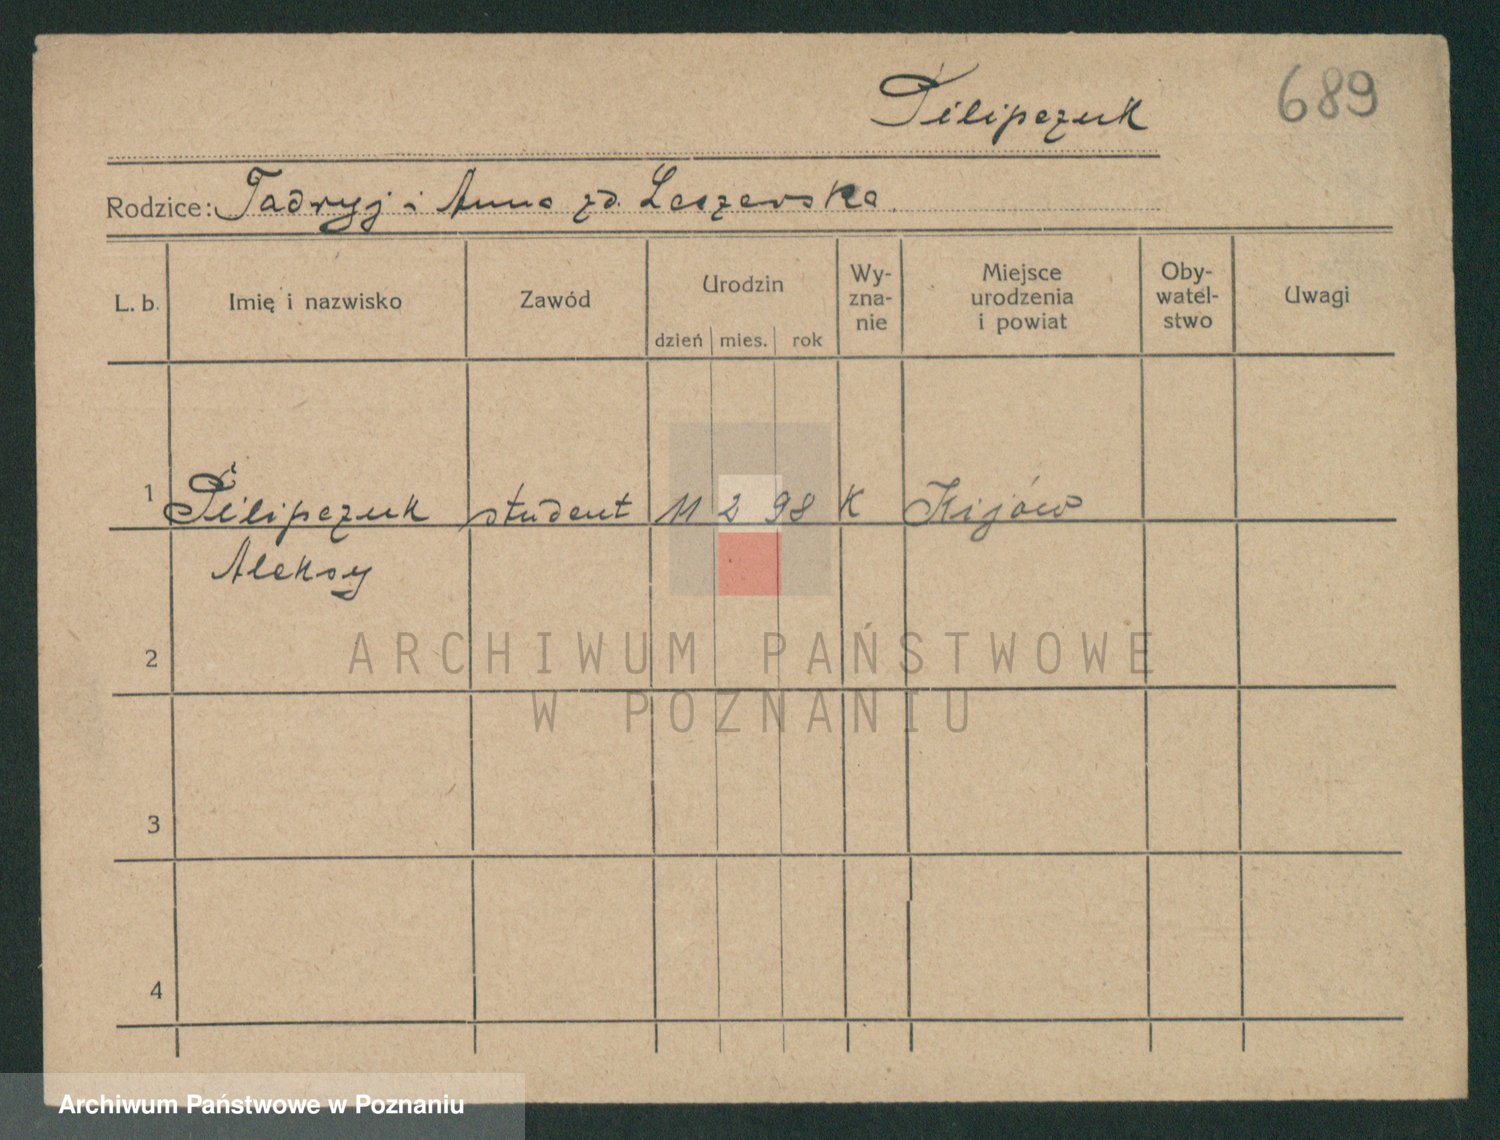 Pilipczuk
689
Rodzice: Tadryj i Anna zd. Leszewska
L. b. Imię i nazwisko Zawód Urodzin dzień mies. rok Wy-zna-nie Miejsce urodzenia i powiat Oby-watel-stwo Uwagi
1 Pilipczuk student 11 2 98 K Kijów
Aleksy
2
ARCHIWUM PAŃSTWOWE
W POZNANIU
3
4
Archiwum Państwowe w Poznaniu